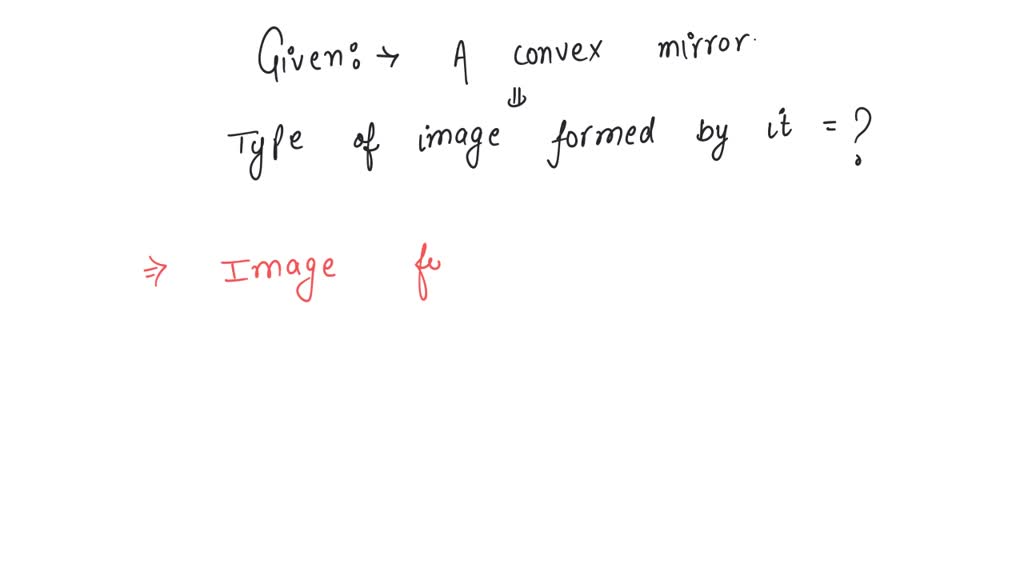 Given:→ A convex mirror.
⇓
Type of image formed by it = ?
⇒ Image fo